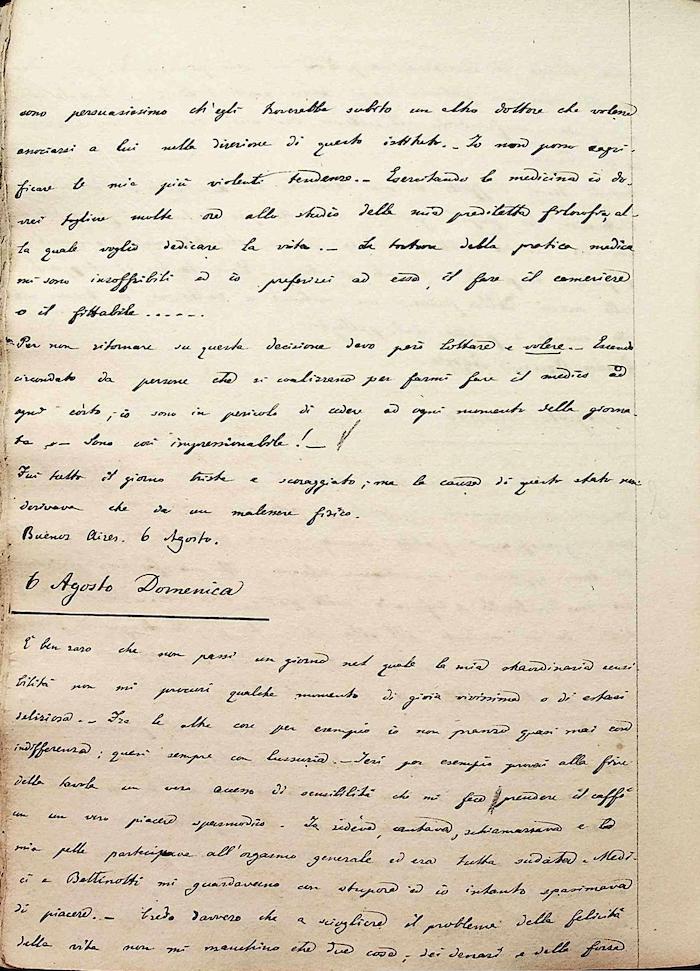 sono persuasissimo ch'egli troverebbe subito un altro dottore che volesse
associarsi a lui nella direzione di questo istituto. - Io non posso sagri-
ficare le mie più violenti tendenze. - Esercitando la medicina io do-
vrei togliere molte ore allo studio della mia prediletta filosofia, al-
la quale voglio dedicare la vita. - Le torture della pratica medica
mi sono insoffribili ed io preferirei ad essa, il fare il cameriere
o il fittabile . . . . . .
Per non ritornare su questa decisione devo però lottare e volere. - Essendo
circondato da persone che si coalizzano per farmi fare il medico ad
ogni costo, io sono in pericolo di cedere ad ogni momento della giorna-
ta. - Sono così impressionabile! -
Fui tutto il giorno triste e scoraggiato; ma la causa di questo stato non
derivava che da un malessere fisico.
Buenos Aires. 6 Agosto.
6 Agosto Domenica
È ben raro che non passi un giorno nel quale la mia straordinaria sensi
bilità non mi procuri qualche momento di gioia vivissima o di estasi
deliziosa. - Fra le altre cose per esempio io non pranzo quasi mai con
indifferenza; quasi sempre con lussuria. - Ieri per esempio provai alla fine
della tavola un vero accesso di sensibilità che mi fece prendere il caffè
con un vero piacere spasmodico. Io rideva, cantava, schiamazzava e la
mia pelle partecipava all'orgasmo generale ed era tutta sudata. Medi-
ci e Bettinotti mi guardavano con stupore ed io intanto spasimava
di piacere. - Credo davvero che a sciogliere il problema della felicità
della vita non mi manchino che due cose, dei denari e della forza